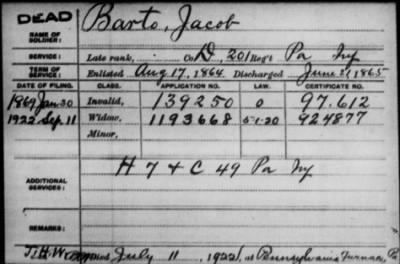 DEAD
NAME OF SOLDIER: Barto, Jacob
SERVICE: Late rank, Co. D, 201 Reg't Pa Inf
TERM OF SERVICE: Enlisted Aug 17, 1864 Discharged June 21, 1865
DATE OF FILING. CLASS. APPLICATION NO. LAW. CERTIFICATE NO.
1869 Jan 30 Invalid, 139250 O 97.612
1922 Sep. 11 Widow, 1193668 5-1-20 924877
Minor,
ADDITIONAL SERVICES: H 7 & C 49 Pa Inf
REMARKS:
July 11, 1922, at Pennsylvania Furnace, Pa